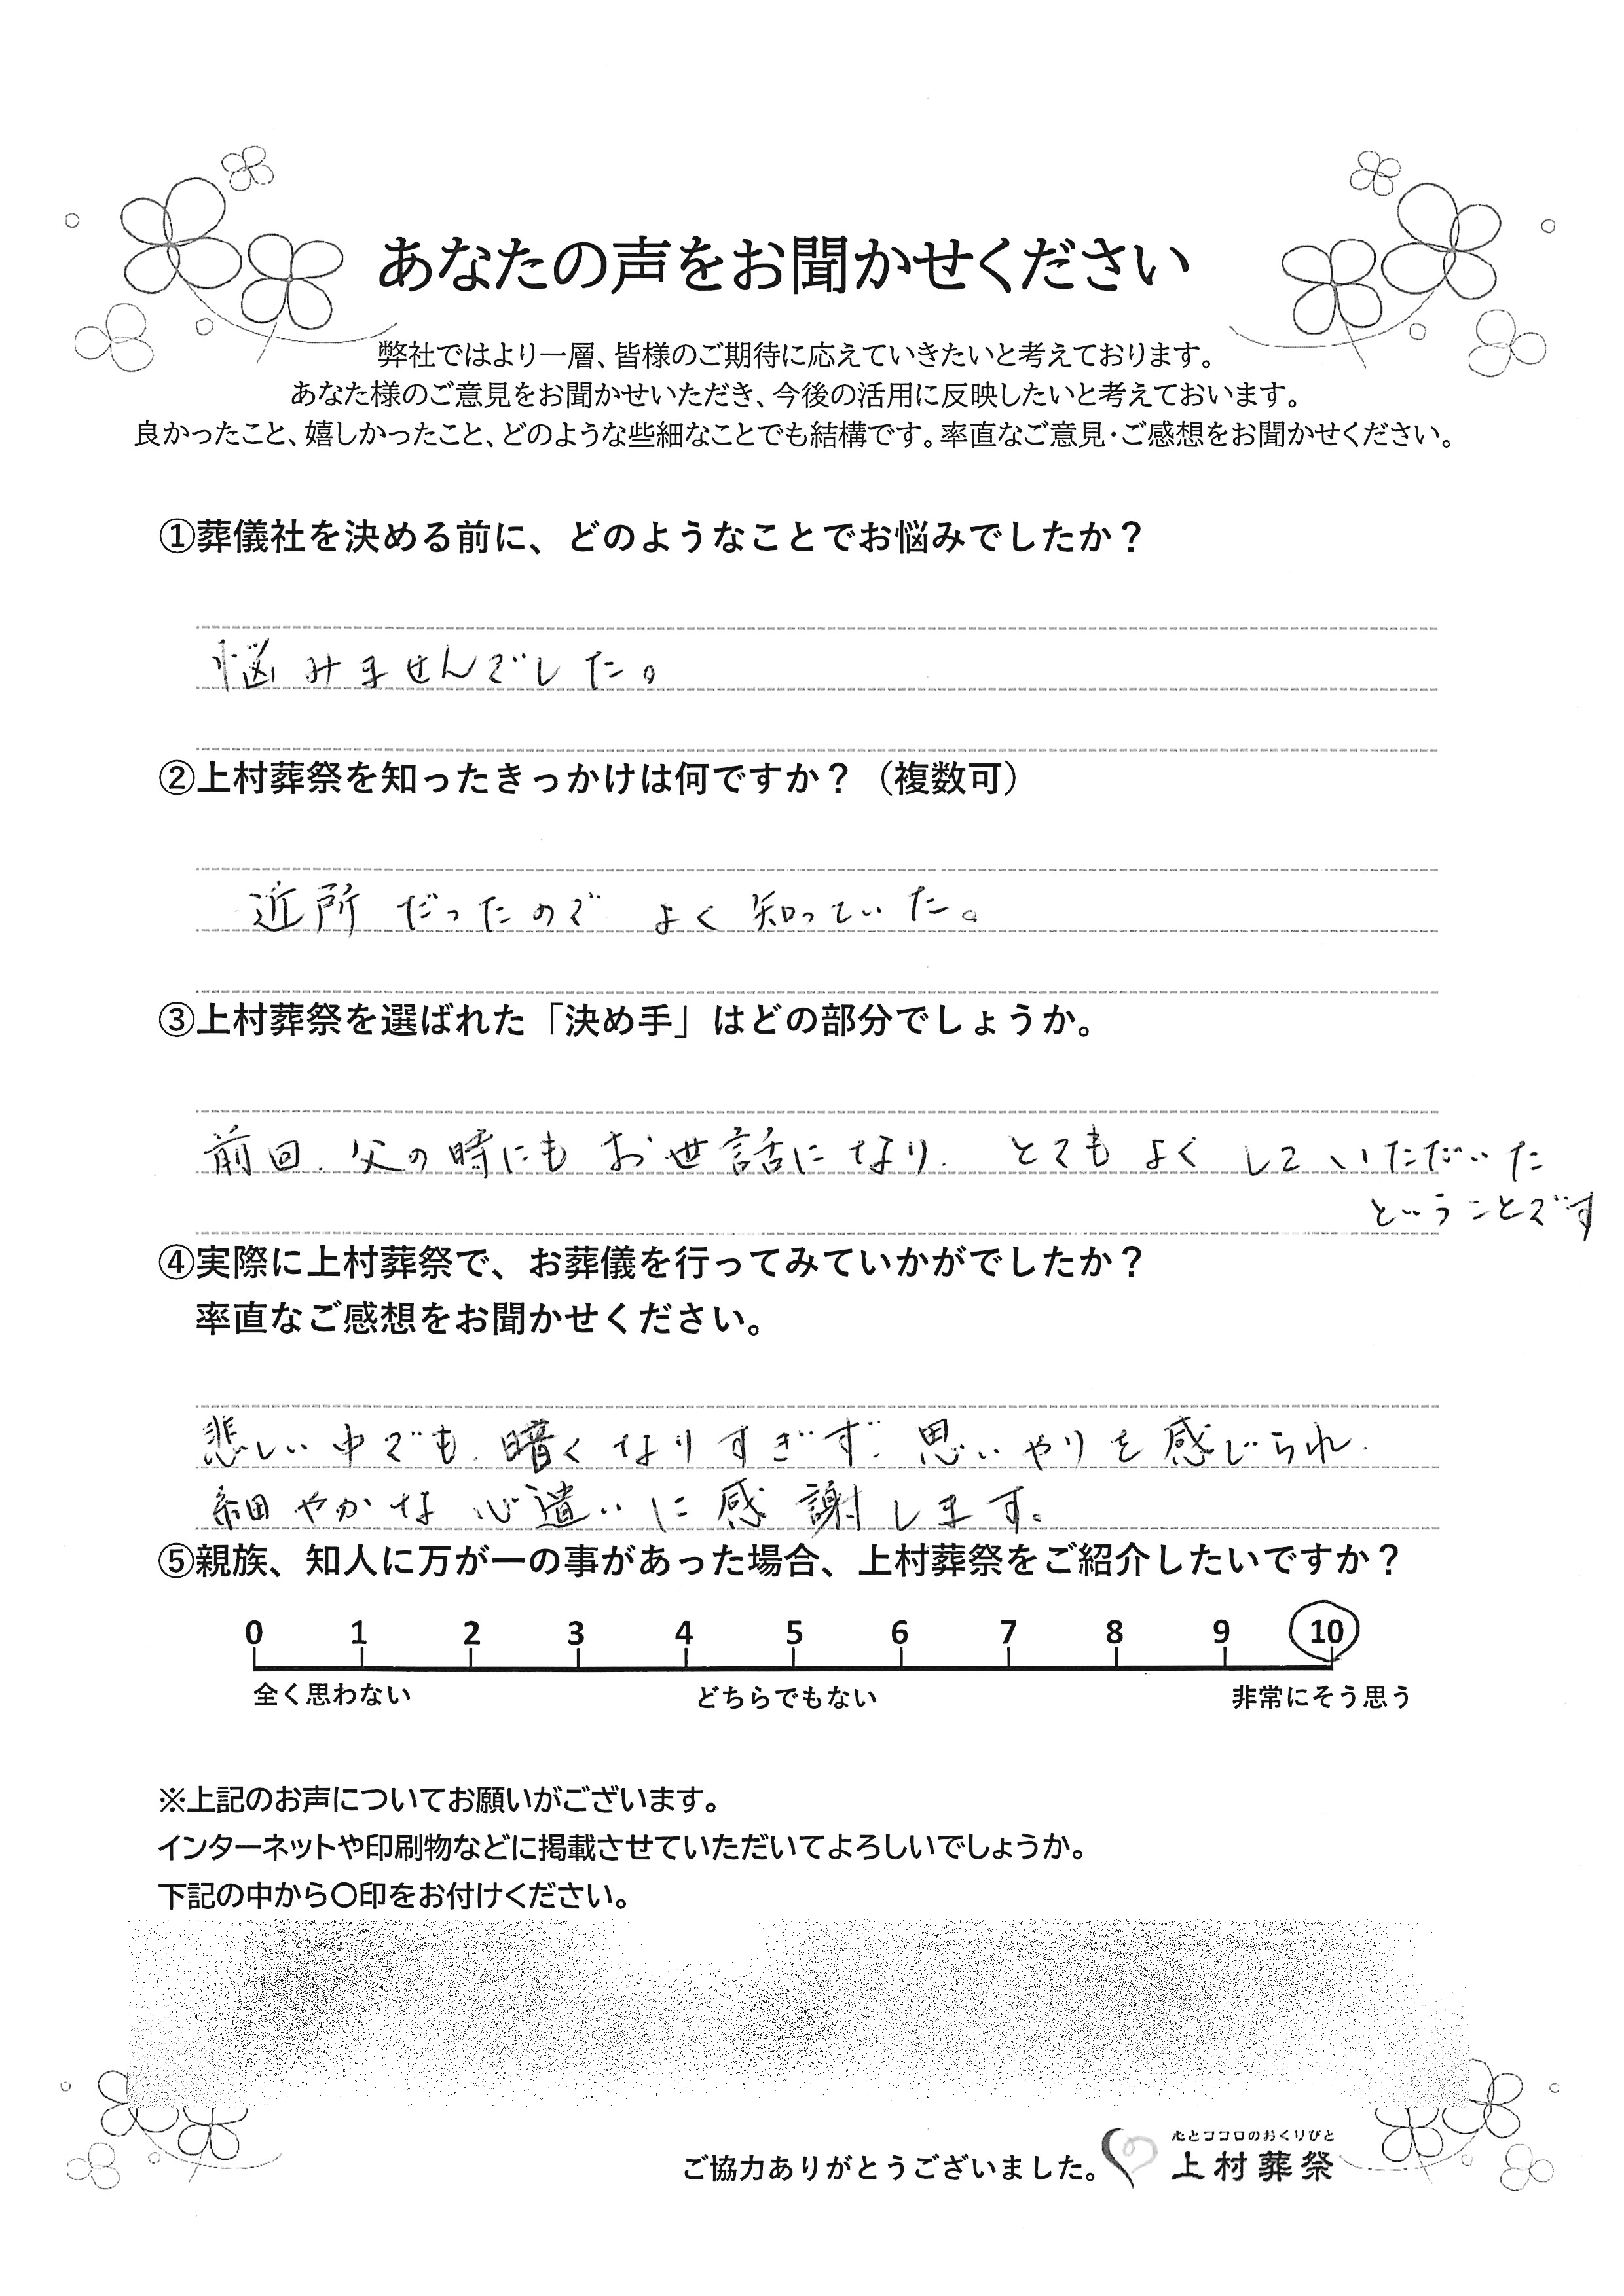 あなたの声をお聞かせください
弊社ではより一層、皆様のご期待に応えていきたいと考えております。
あなた様のご意見をお聞かせいただき、今後の活用に反映したいと考えておいます。
良かったこと、嬉しかったこと、どのような些細なことでも結構です。率直なご意見・ご感想をお聞かせください。
①葬儀社を決める前に、どのようなことでお悩みでしたか？
悩みませんでした。
②上村葬祭を知ったきっかけは何ですか？（複数可）
近所だったのでよく知っていた。
③上村葬祭を選ばれた「決め手」はどの部分でしょうか。
前回、父の時にもお世話になり、とてもよくしていただいた
ということです
④実際に上村葬祭で、お葬儀を行ってみていかがでしたか？
率直なご感想をお聞かせください。
悲しい中でも、暗くなりすぎず、思いやりを感じられ、
細やかな心遣いに感謝します。
⑤親族、知人に万が一の事があった場合、上村葬祭をご紹介したいですか？
0 1 2 3 4 5 6 7 8 9 10
全く思わない どちらでもない 非常にそう思う
※上記のお声についてお願いがございます。
インターネットや印刷物などに掲載させていただいてよろしいでしょうか。
下記の中から〇印をお付けください。
心とココロのおくりびと
ご協力ありがとうございました。 上村葬祭